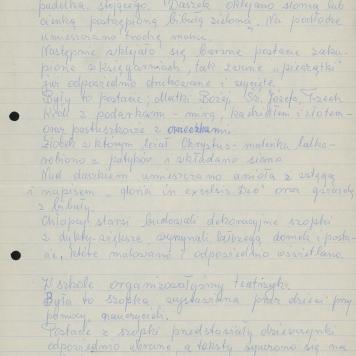 pudełka stojącego. Daszek oklejano słomą lub
cienko postrzępioną bibułą zieloną. Na podłodze
umieszczano trochę mchu.
Następnie wklejało się barwne postacie zaku-
pione w księgarniach, tak zwane "pieczątki"
już odpowiednio drukowane i wycięte.
Były to postacie; Matki Bożej, Św. Józefa, Trzech
Króli z podarkami - mirą, kadzidłem i złotem -
oraz pastuszkowie z owieczkami.
Żłobek w którym leżał Chrystus - maleńka lalka -
robiono z patyków i wkładano siano
Nad daszkiem umieszczano anioła z wstęgą
i napisem "gloria in excelsis Deo" oraz gwiazdę
z bibuły.
Chłopcy starsi budowali dekoracyjne szopki
z dykty większe, wyrzynali laubzegą domek i posta-
cie, które malowano i odpowiednio oświetlano.
W szkole organizowałyśmy teatrzyk.
Była to szopka, wystawiana przez dzieci przy
pomocy nauczycieli.
Postacie z szopki przedstawiały dziewczynki
odpowiednio ubrane, a teksty uczono się na